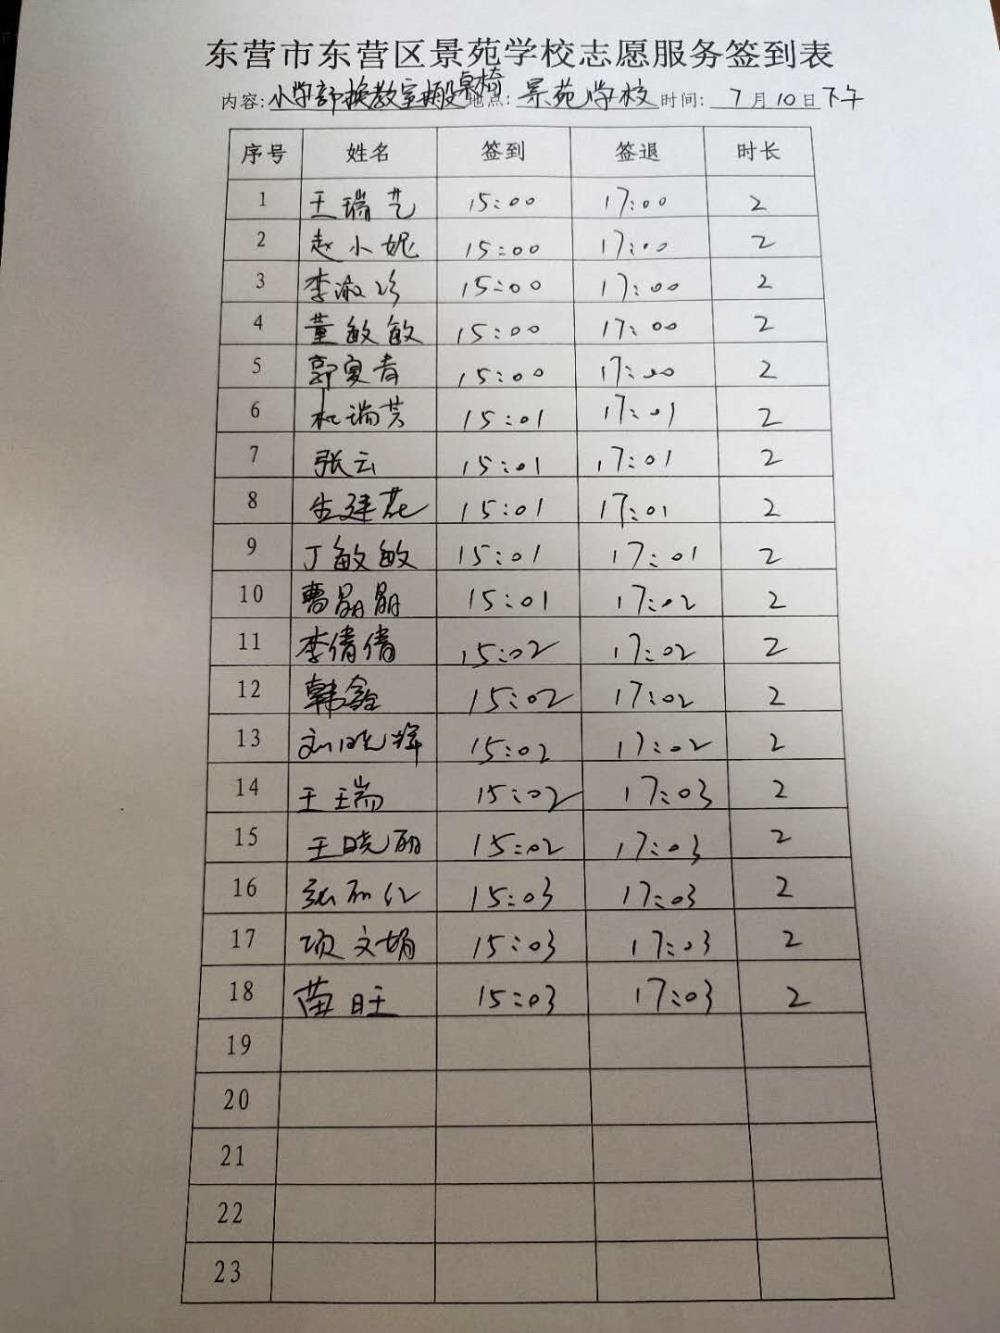 东营市东营区景苑学校志愿服务签到表
内容: 小学部换教室搬桌椅 地点: 景苑学校 时间: 7月10日下午
序号 姓名 签到 签退 时长
1 王瑞艺 15:00 17:00 2
2 赵小妮 15:00 17:00 2
3 李淑珍 15:00 17:00 2
4 董敏敏 15:00 17:00 2
5 郭夏青 15:00 17:00 2
6 杜瑞芳 15:01 17:01 2
7 张云 15:01 17:01 2
8 生建花 15:01 17:01 2
9 丁敏敏 15:01 17:01 2
10 曹晶晶 15:01 17:02 2
11 李倩倩 15:02 17:02 2
12 韩鑫 15:02 17:02 2
13 刘晓辉 15:02 17:02 2
14 王瑞 15:02 17:03 2
15 王晓丽 15:02 17:03 2
16 15:03 17:03 2
17 项文娟 15:03 17:03 2
18 苗旺 15:03 17:03 2
19
20
21
22
23